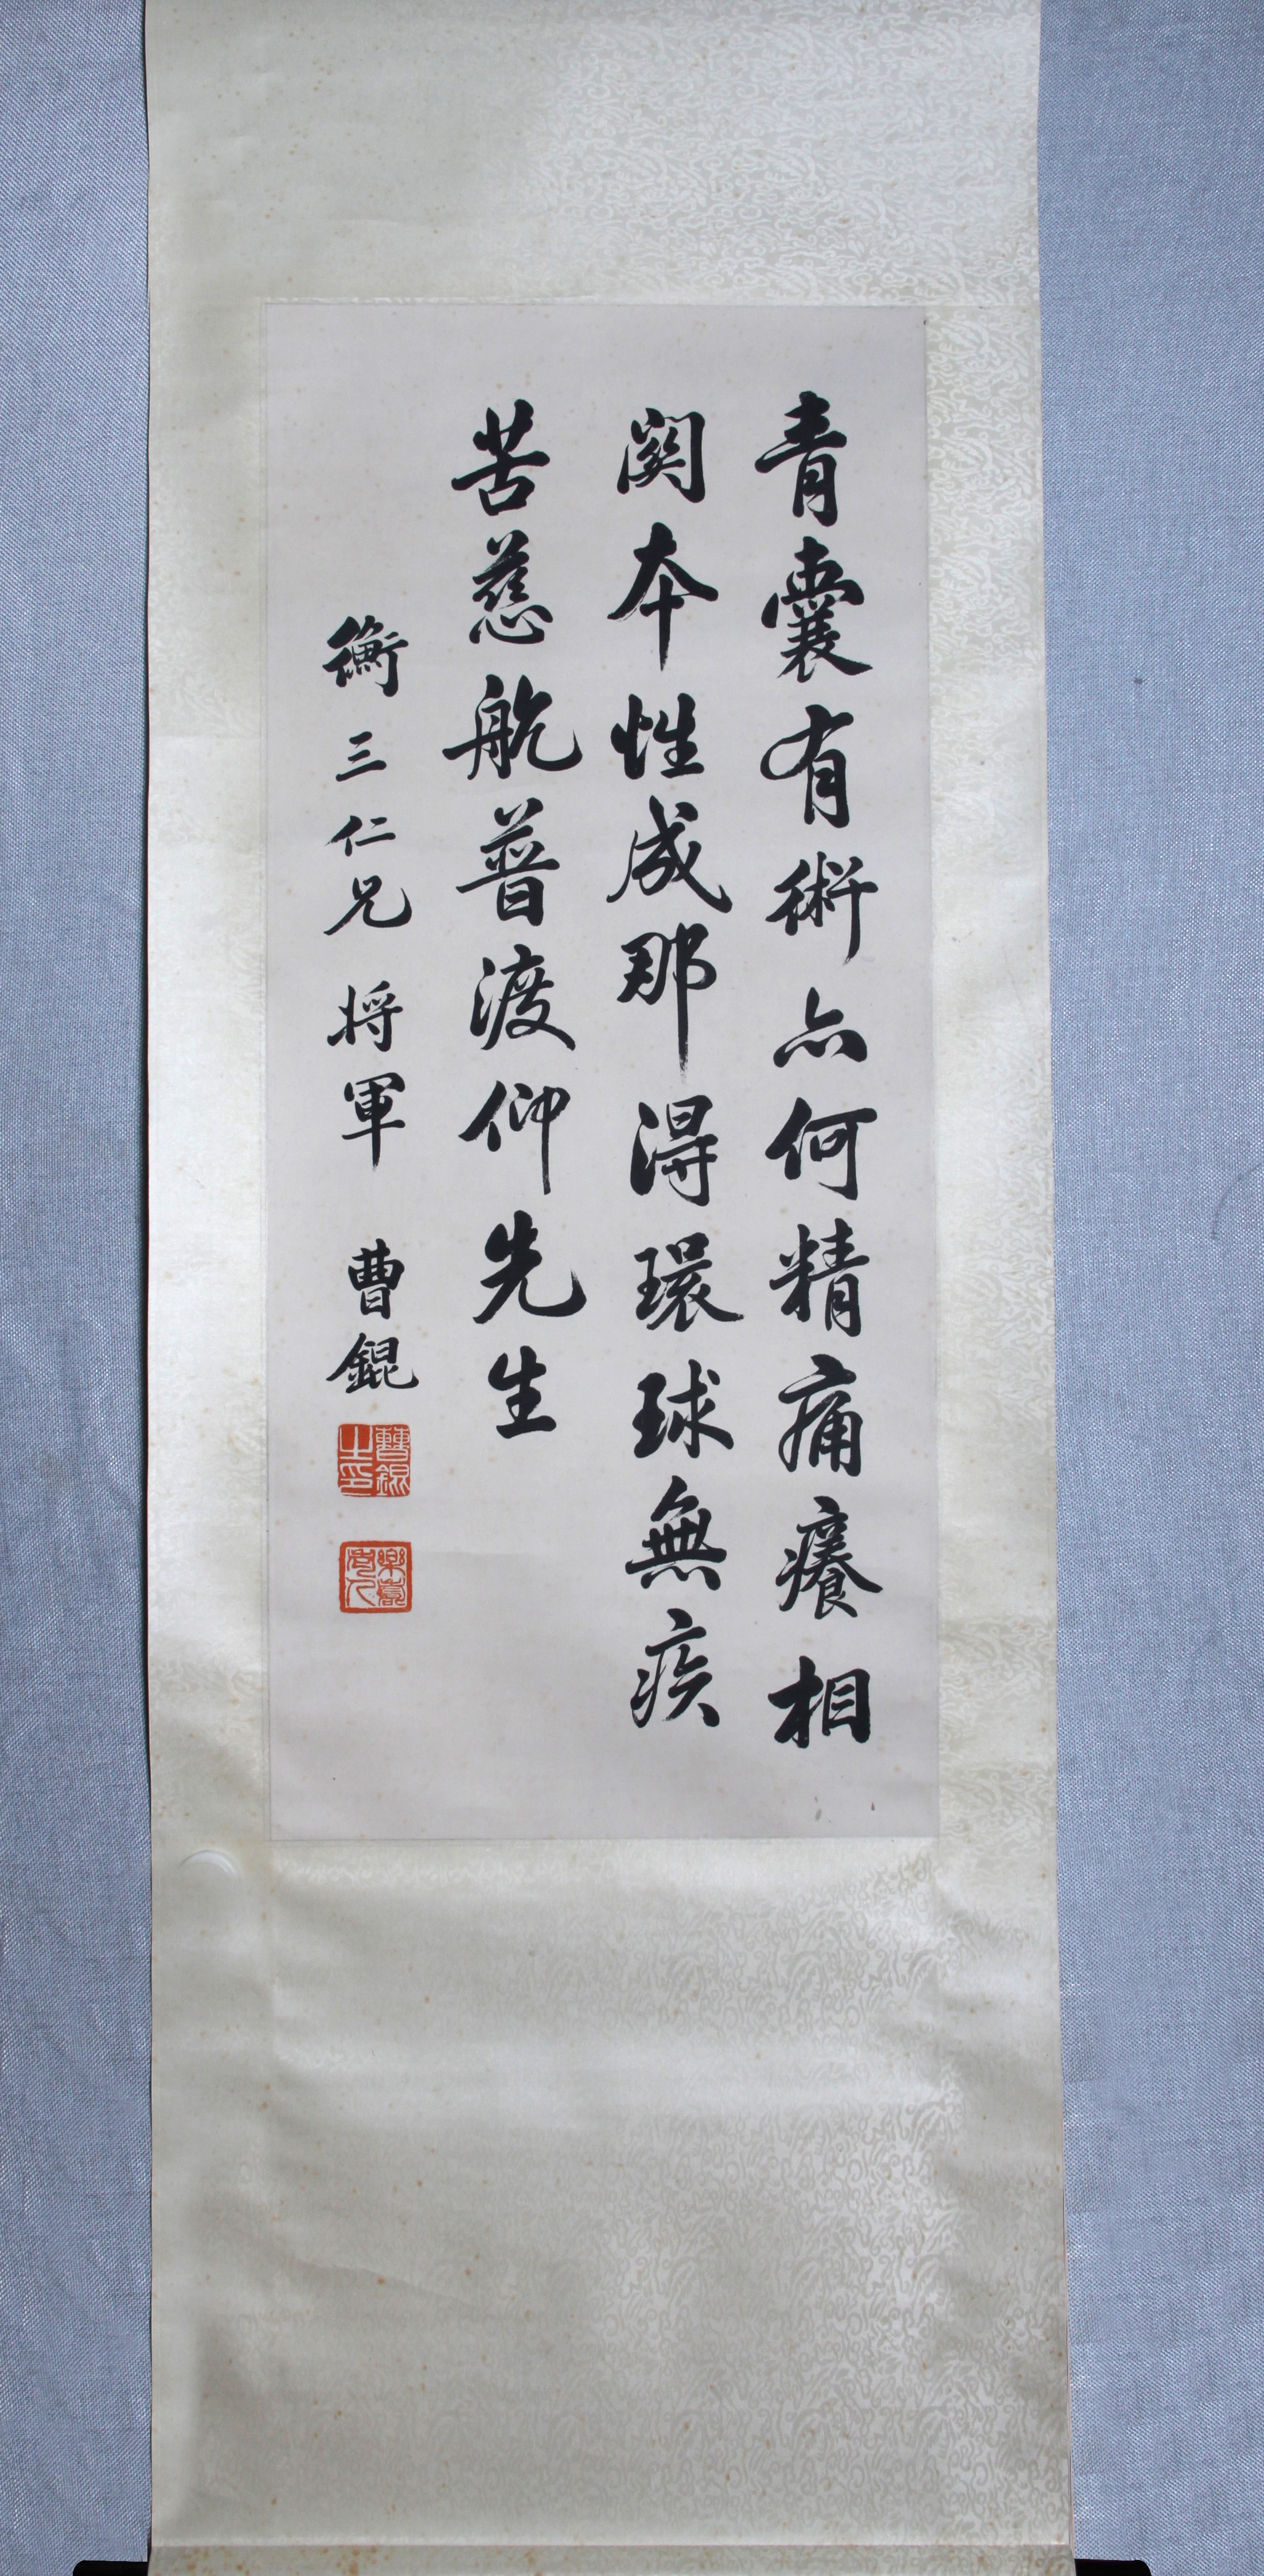 青囊有術亦何精痛癢相
関本性成那得環球無疾
苦慈航普渡仰先生
衡三仁兄將軍 曹錕
曹錕之印
樂壽老人